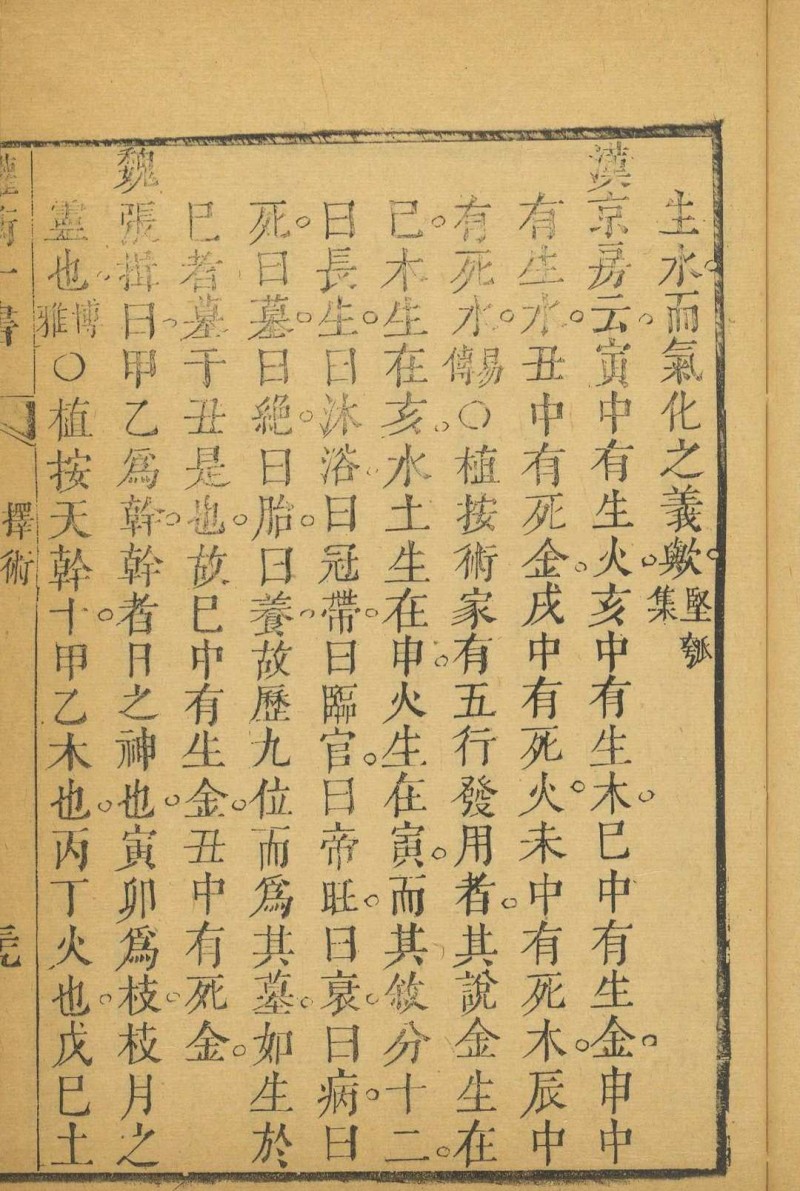 生水而氣化之義歟堅瓠集
漢京房云寅中有生火亥中有生木巳中有生金申中
有生水丑中有死金戌中有死火未中有死木辰中
有死水易傳○植按術家有五行發用者其說金生在
巳木生在亥水土生在申火生在寅而其敘分十二
曰長生曰沐浴曰冠帶曰臨官曰帝旺曰衰曰病曰
死曰墓曰絕曰胎曰養故歷九位而爲其墓如生於
巳者墓于丑是也故巳中有生金丑中有死金
魏張揖曰甲乙爲幹幹者日之神也寅卯爲枝枝月之
靈也博雅○植按天幹十甲乙木也丙丁火也戊巳土
擇術